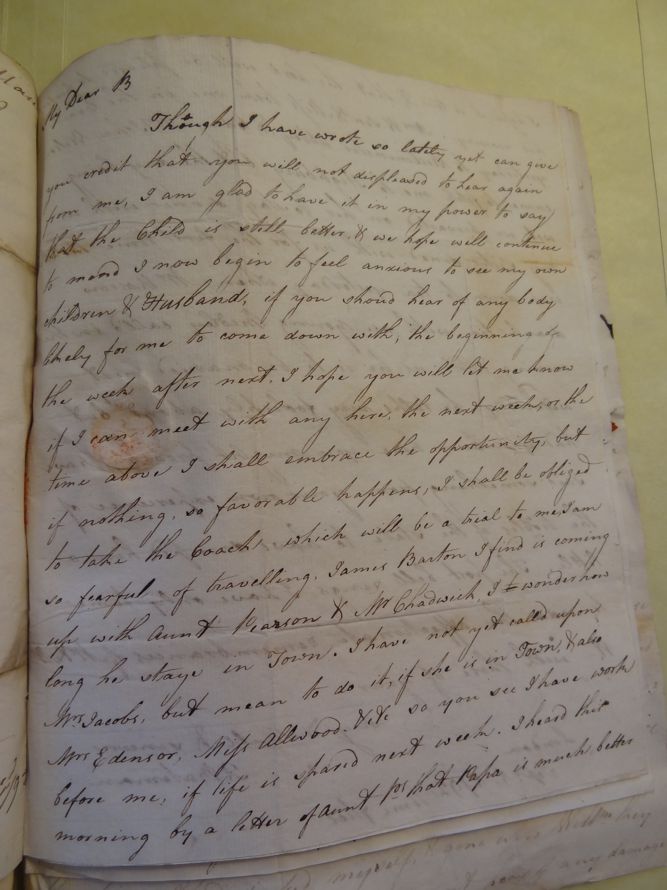 My Dear B
Though I have wrote so lately yet can give
you credit that you will not displeased to hear again
from me, I am glad to have it in my power to say
that the Child is still better & we hope will continue
to mend I now begin to feel anxious to see my own
children & Husband, if you shoud hear of any body
likely for me to come down with, the beginning of
the week after next, I hope you will let me know
if I can meet with any here, the next week, or the
time above I shall embrace the opportunity, but
if nothing, so favorable happens, I shall be obliged
to take the Coach, which will be a trial to me, I am
so fearful of travelling. James Barton I find is coming
up with Aunt Pearson & Mr Chadwick, I wonder how
long he stays in Town. I have not yet called upon
Mrs Jacobs, but mean to do it, if she is in Town, & also
Mrs Edensor, Miss Allwood. &c so you see I have work
before me, if life is spared next week. I heard this
morning by a letter of Aunt Ps that Papa is much better
myself, &
of any damage